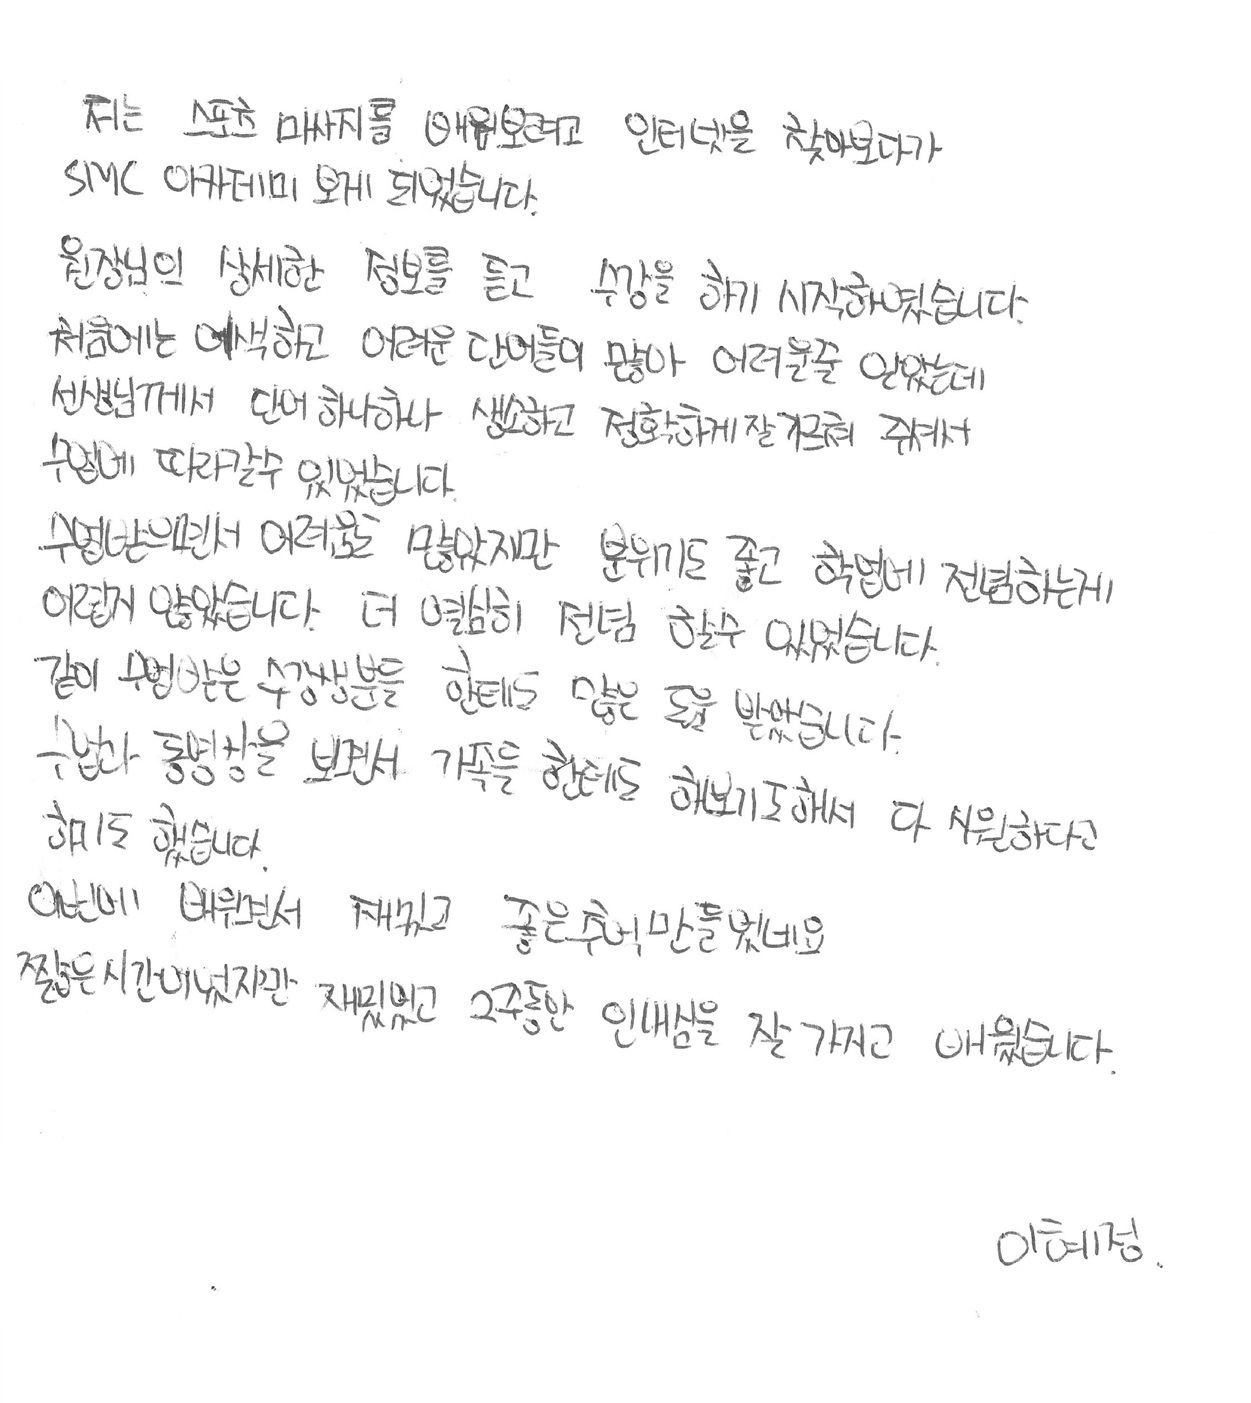 저는 스포츠 마사지를 배워보려고 인터넷을 찾아보다가
SMC 아카데미 보게 되었습니다.
원장님의 상세한 정보를 듣고 수강을 하기 시작하였습니다.
처음에는 어색하고 어려운 단어들이 많아 어려운줄 알았는데
선생님께서 단어 하나하나 생소하고 정확하게 잘 가르쳐 주셔서
수업에 따라갈수 있었습니다.
수업받으면서 어려움도 많았지만 분위기도 좋고 학업에 전념하는게
어렵게 않았습니다. 더 열심히 전념 할수 있었습니다.
같이 수업받은 수강생분들 한테도 많은 도움 받았습니다.
수법과 동영상을 보면서 가족들 한테도 해보기도해서 다 시원하다고
하기도 했습니다.
이번에 배워면서 재밌고 좋은추억만들었네요
짧은시간이였지만 재밌있고 2주동안 인내심을 잘 가지고 배웠습니다.
이혜정.